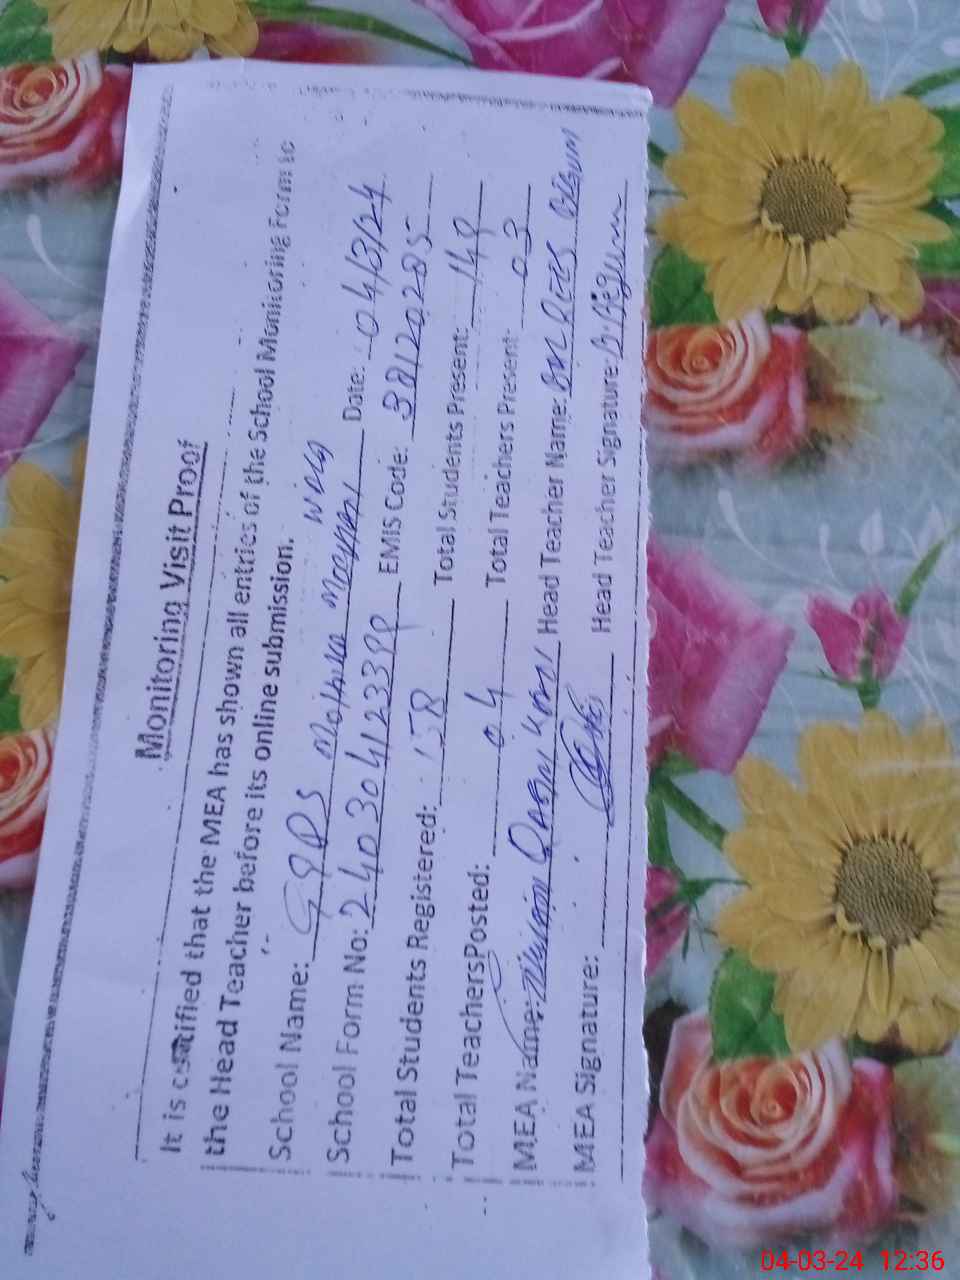 Monitoring Visit Proof
It is certified that the MEA has shown all entries of the School Monitoring Form to
the Head Teacher before its online submission.
School Name: GGPS Date: 04/3/24
School Form No: 2403041233 EMIS Code: 38120285
Total Students Registered: 158 Total Students Present: 149
Total Teachers Posted: 04 Total Teachers Present: 03
MEA Name: Head Teacher Name:
MEA Signature: Head Teacher Signature: B.Begum
04-03-24 12:36